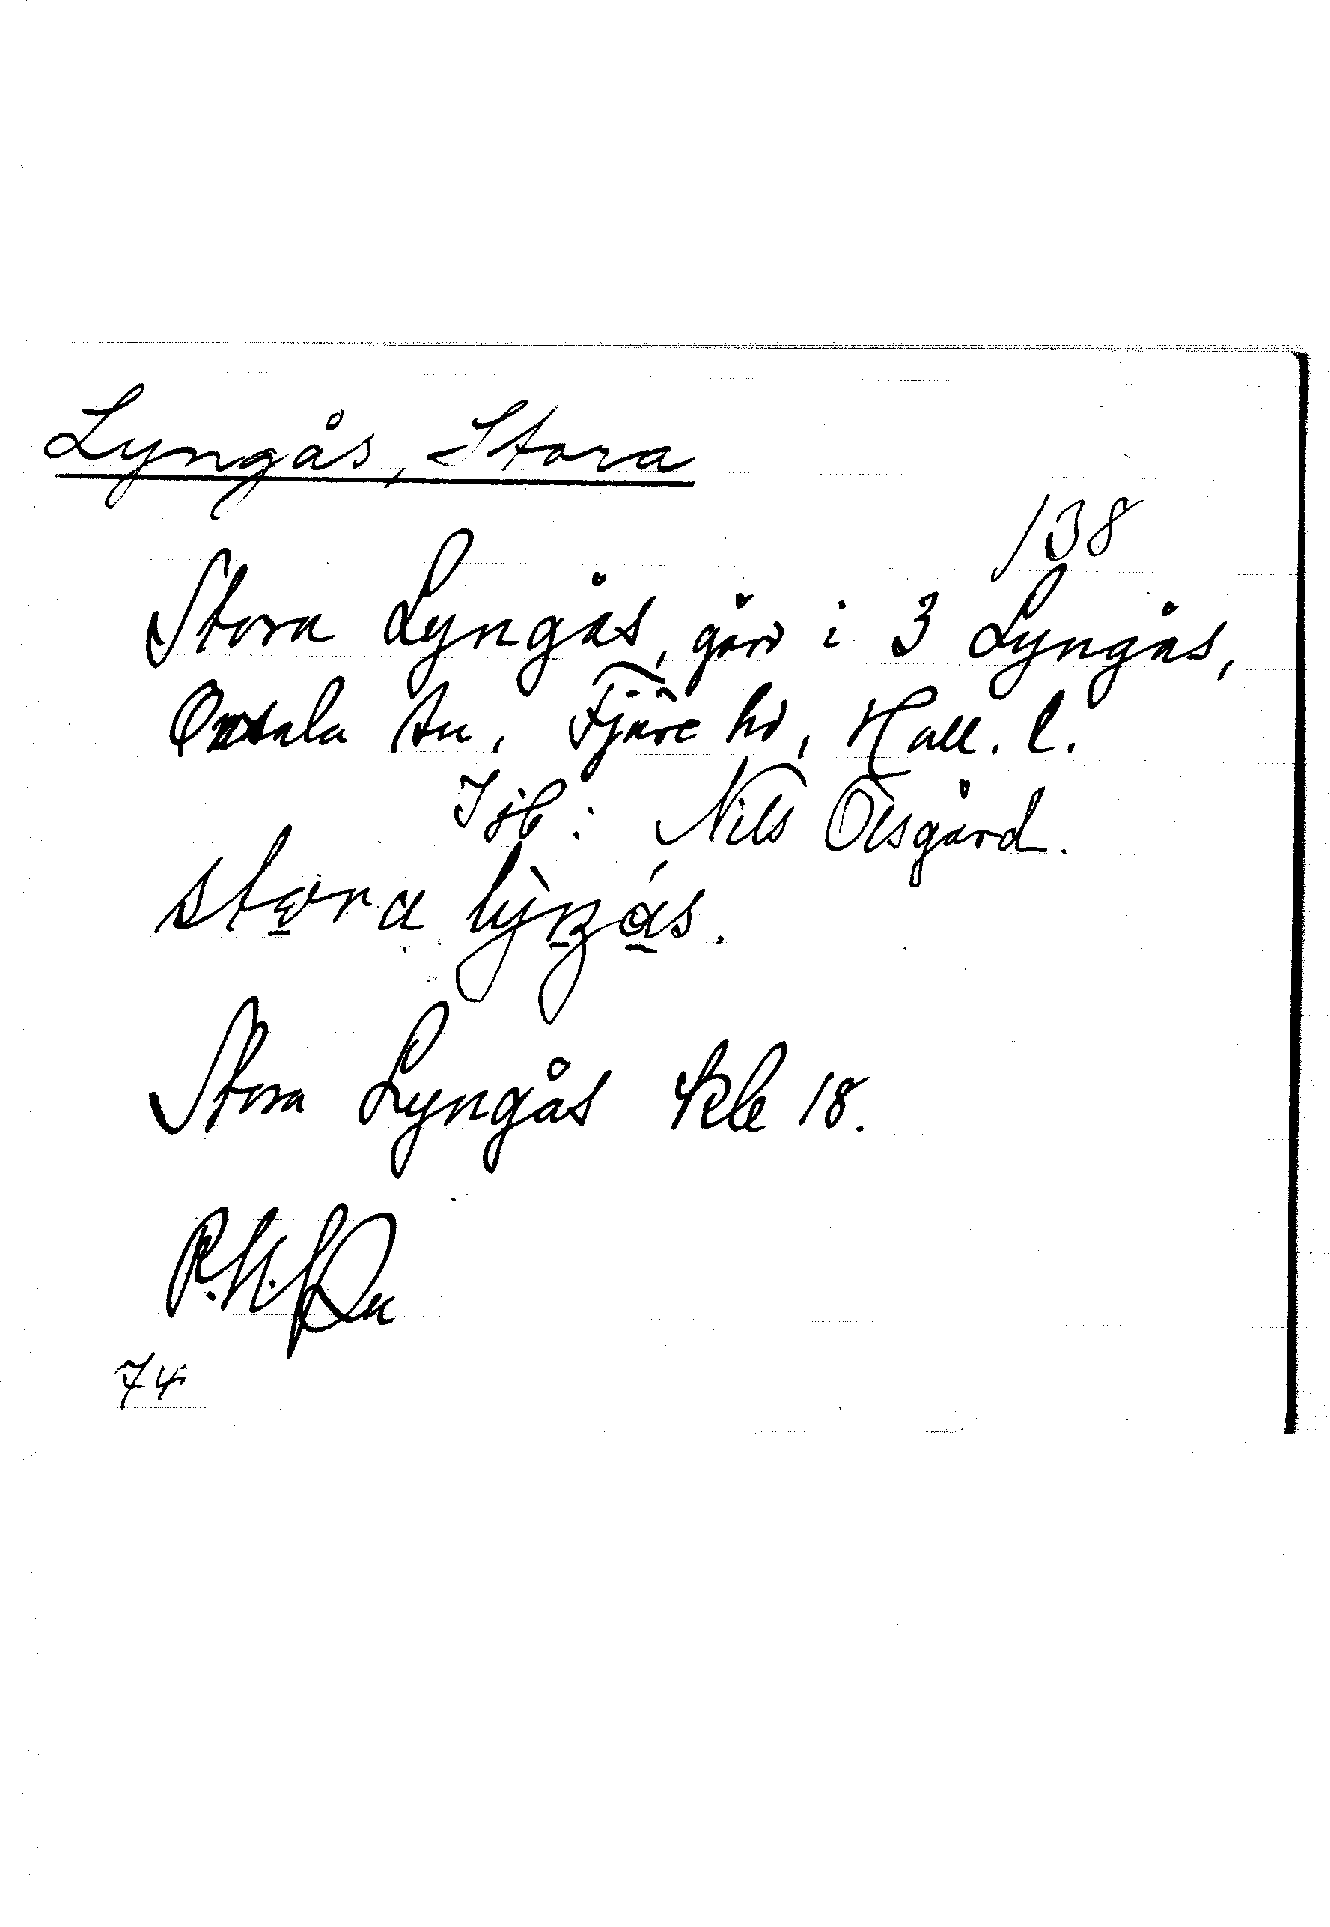 Lyngås, Stora
138
Stora Lyngås, gård i 3 Lyngås,
Onsala sn, Fjäre hd, Hall. l.
Jfr: Nils Olsgård.
stora
Stora Lyngås Skle 18.
74